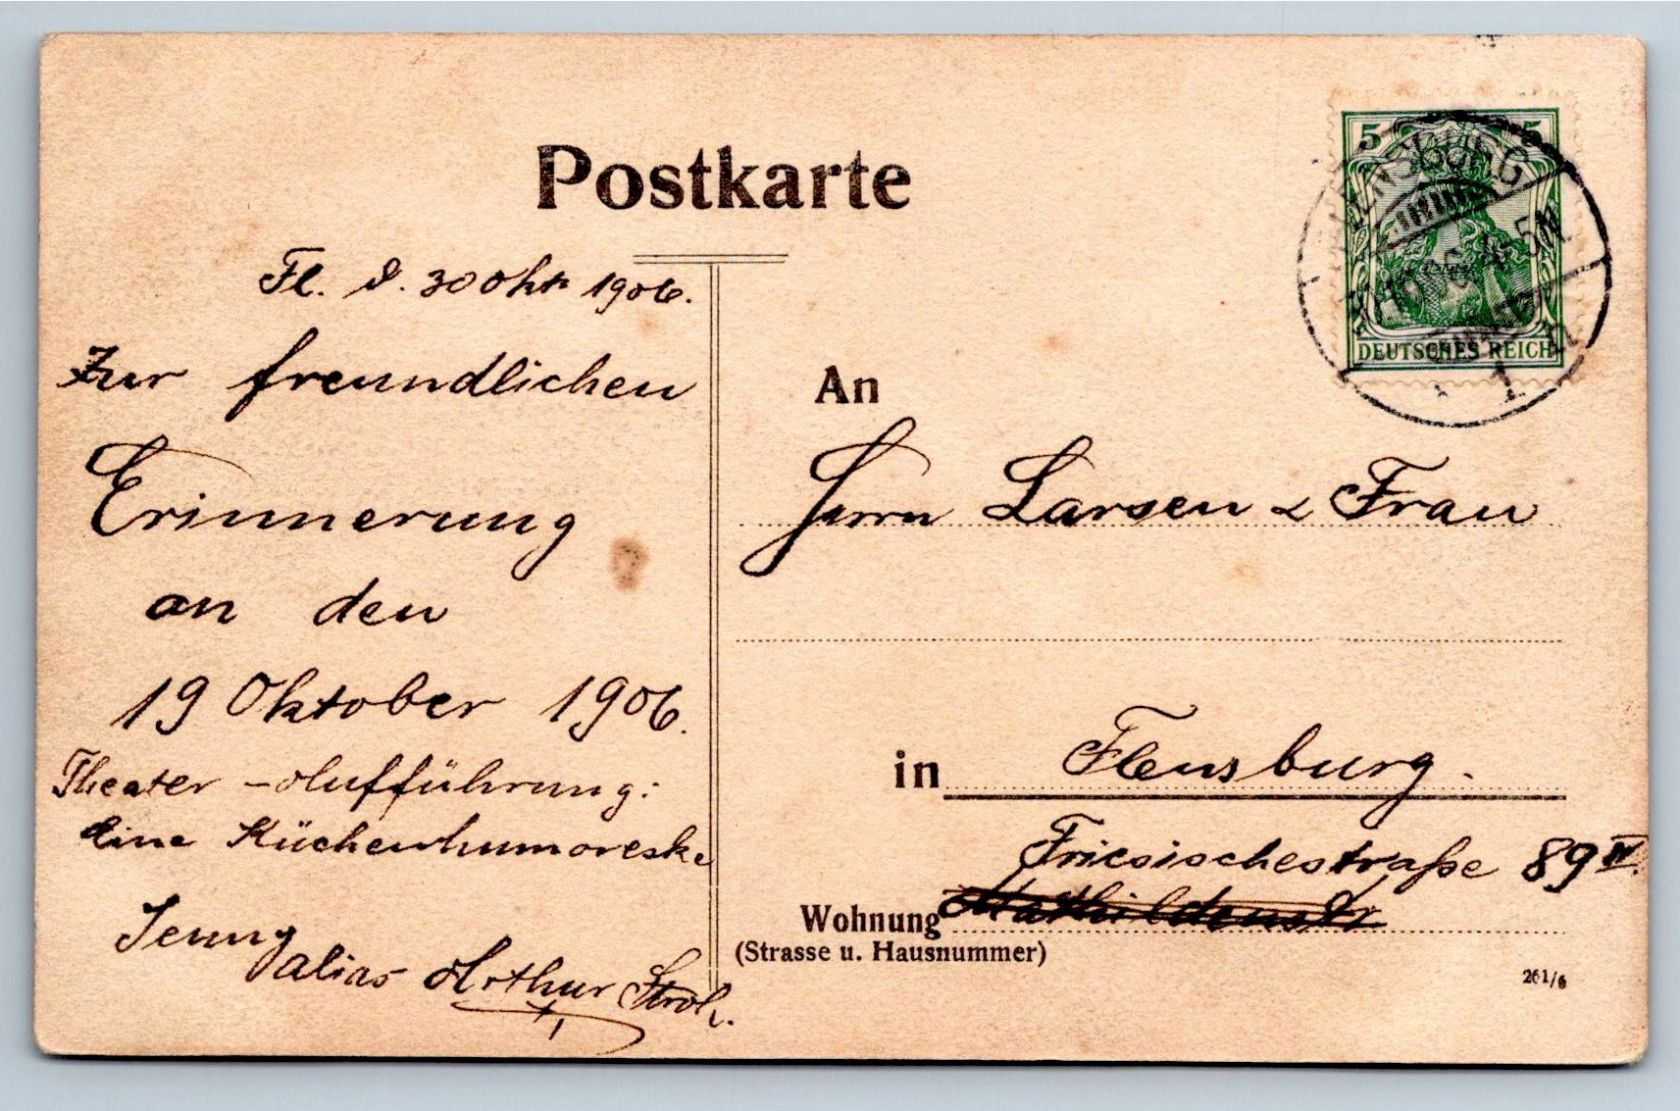 Postkarte
Fl. d. 30 Okt 1906.
Zur freundlichen
Erinnerung
an den
19 Oktober 1906.
Theater-Aufführung:
Eine Küchenhumoreske
Jenny
alias Arthur Stroh.
5 5
DEUTSCHES REICH
FLENSBURG
An
Herrn Larsen & Frau
in Flensburg.
Friesischestraße 89 IV.
Wohnung Mathildenstr
(Strasse u. Hausnummer)
261/6